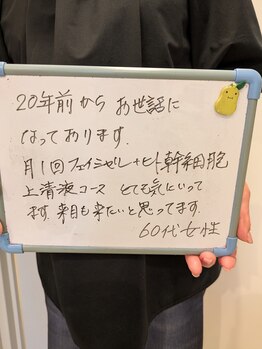 20年前から お世話に
なっております.
月1回フェイシャル+ヒト幹細胞
上清液コース とても気にいって
ます. 来月も来たいと思ってます.
60代女性